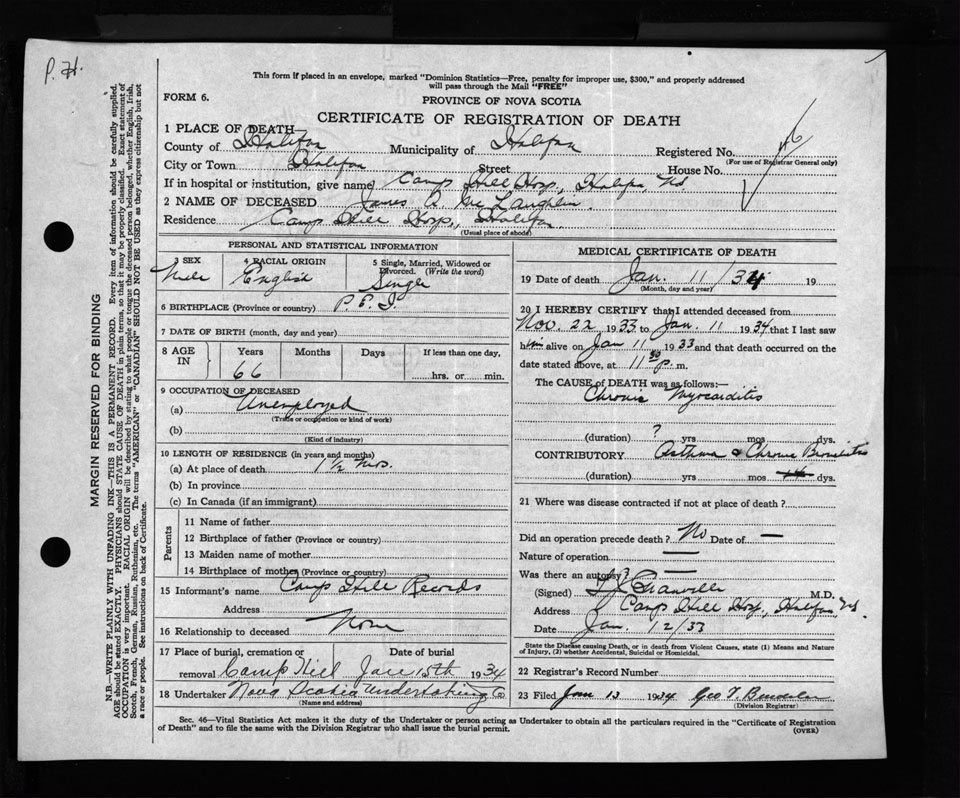 P. H.
This form if placed in an envelope, marked "Dominion Statistics—Free, penalty for improper use, $300," and properly addressed
will pass through the Mail "FREE"
FORM 6.
PROVINCE OF NOVA SCOTIA
CERTIFICATE OF REGISTRATION OF DEATH
1 PLACE OF DEATH
County of Halifax Municipality of Halifax Registered No. 46
(For use of Registrar General only)
City or Town Halifax Street House No.
If in hospital or institution, give name Camp Hill Hosp., Halifax NS
2 NAME OF DECEASED James A. McLaughlin.
Residence Camp Hill Hosp., Halifax.
(Usual place of abode)
PERSONAL AND STATISTICAL INFORMATION
3 SEX Male
4 RACIAL ORIGIN English
5 Single, Married, Widowed or Divorced. (Write the word) Single
6 BIRTHPLACE (Province or country) P. E. I
7 DATE OF BIRTH (month, day and year)
8 AGE IN Years Months Days If less than one day,
66 hrs. or min.
9 OCCUPATION OF DECEASED
(a) Unemployed
(Trade or occupation or kind of work)
(b)
(Kind of industry)
10 LENGTH OF RESIDENCE (in years and months)
(a) At place of death 1 1/2 mos.
(b) In province
(c) In Canada (if an immigrant)
Parents
11 Name of father
12 Birthplace of father (Province or country)
13 Maiden name of mother
14 Birthplace of mother (Province or country)
15 Informant's name Camp Hill Records
Address
16 Relationship to deceased None
17 Place of burial, cremation or Date of burial
removal Camp Hill Jan 15th 1934
18 Undertaker Nova Scotia Undertaking Co
(Name and address)
MEDICAL CERTIFICATE OF DEATH
19 Date of death Jan. 11/34 19
(Month, day and year)
20 I HEREBY CERTIFY that I attended deceased from
Nov. 22 1933 to Jan. 11 1934 that I last saw
him alive on Jan 11 1933 and that death occurred on the
date stated above, at 11 p. m.
The CAUSE of DEATH was as follows:—
Chronic Myocarditis
(duration) ? yrs mos dys.
CONTRIBUTORY Asthma & Chronic Bronchitis
(duration) yrs mos dys.
21 Where was disease contracted if not at place of death?
Did an operation precede death? No Date of —
Nature of operation —
Was there an autopsy? —
(Signed) Granville M.D.
Address Camp Hill Hosp., Halifax NS
Date Jan. 12/33
State the Disease causing Death, or in death from Violent Causes, state (1) Means and Nature
of Injury, (2) whether Accidental, Suicidal or Homicidal.
22 Registrar's Record Number
23 Filed Jan 13 1934 Geo T.
(Division Registrar)
Sec. 46—Vital Statistics Act makes it the duty of the Undertaker or person acting as Undertaker to obtain all the particulars required in the "Certificate of Registration
of Death" and to file the same with the Division Registrar who shall issue the burial permit.
(OVER)
MARGIN RESERVED FOR BINDING
N.B.—WRITE PLAINLY WITH UNFADING INK—THIS IS A PERMANENT RECORD. Every item of information should be carefully supplied.
AGE should be stated EXACTLY. PHYSICIANS should STATE CAUSE OF DEATH in plain terms, so that it may be properly classified. Exact statement of
OCCUPATION is very important. RACIAL ORIGIN will be described by stating to what people or tongue the deceased person belonged, whether English, Irish,
Scotch, French, German, Russian, Ruthenian, etc. The terms "AMERICAN" or "CANADIAN" SHOULD NOT BE USED as they express citizenship but not
a race or people. See instructions on back of Certificate.